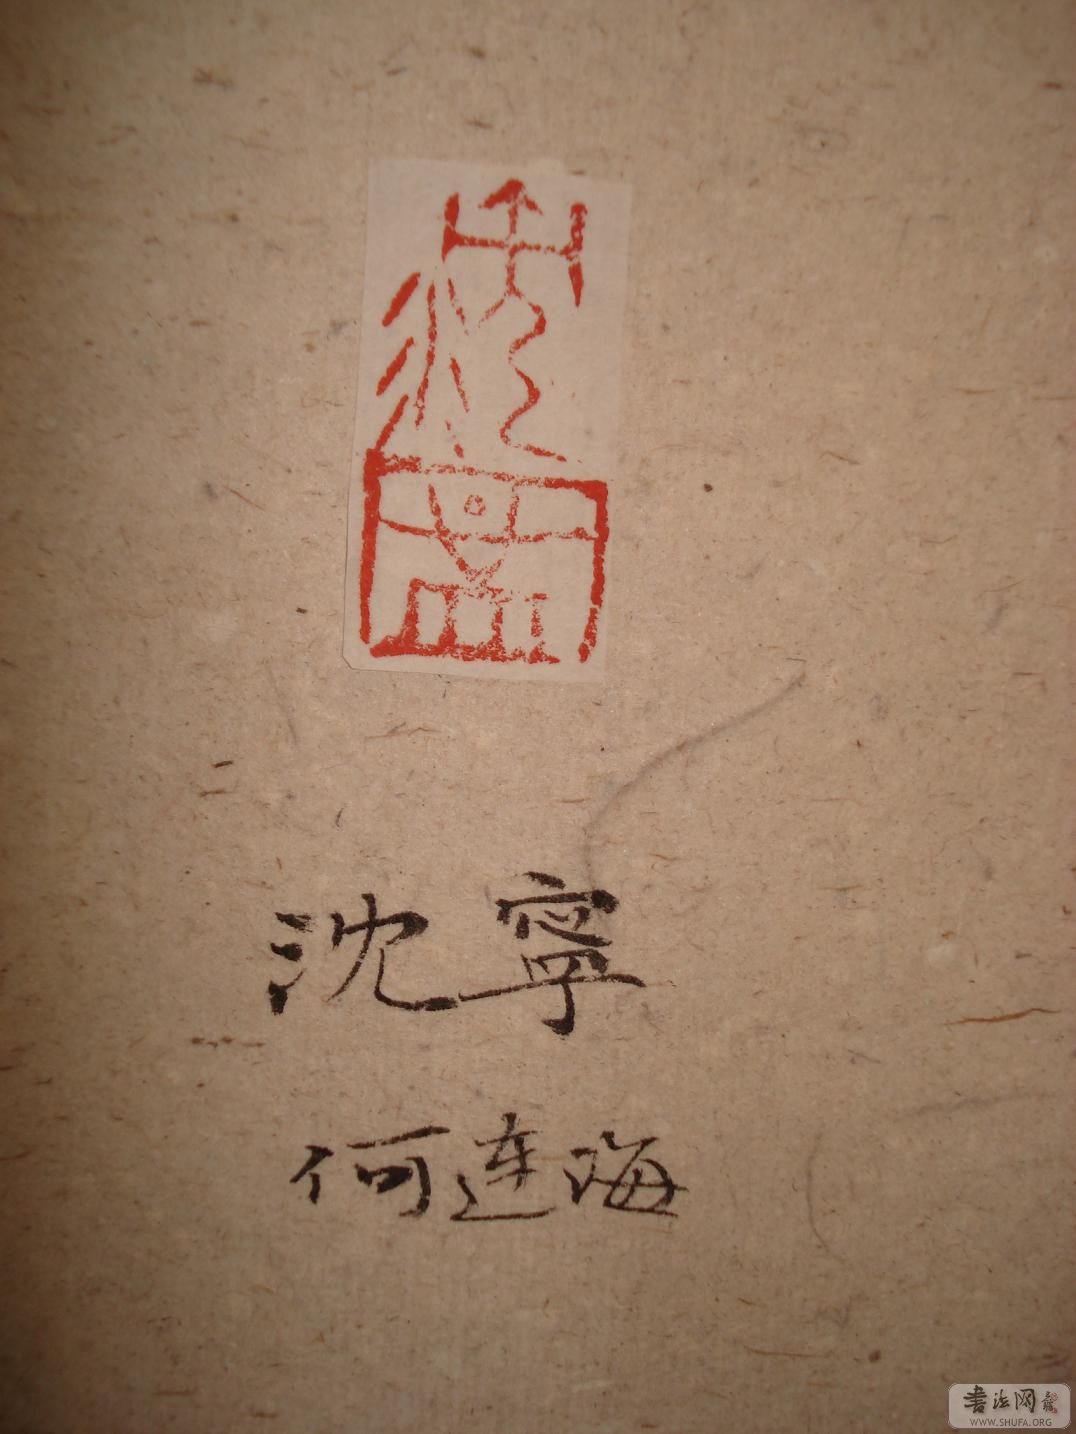 沈寧
沈寧
何连海
书法网
WWW.SHUFA.ORG